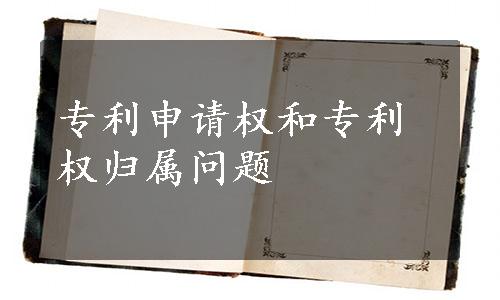 专利申请权和专利
权归属问题